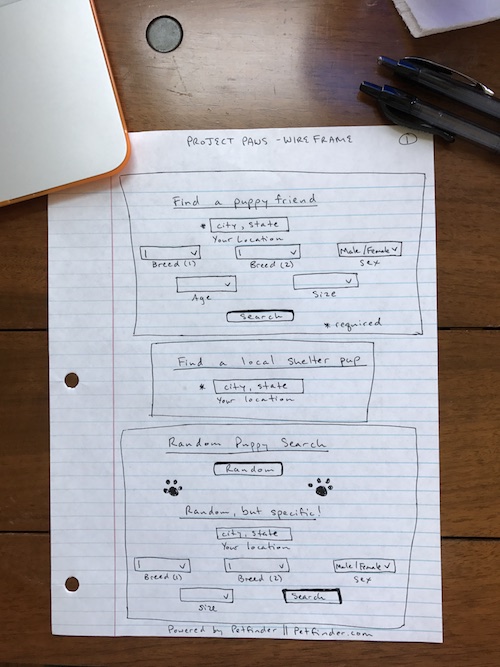 PROJECT PAWS - WIREFRAME 1
Find a puppy friend
* city, state
Your Location
Male/Female
Breed (1) Breed (2) Sex
Age Size
Search
* required
Find a local shelter pup
* city, state
Your location
Random Puppy Search
Random
Random, but specific!
city, state
Your location
Male/Female
Breed (1) Breed (2) Sex
Size Search
Powered by Petfinder || Petfinder.com